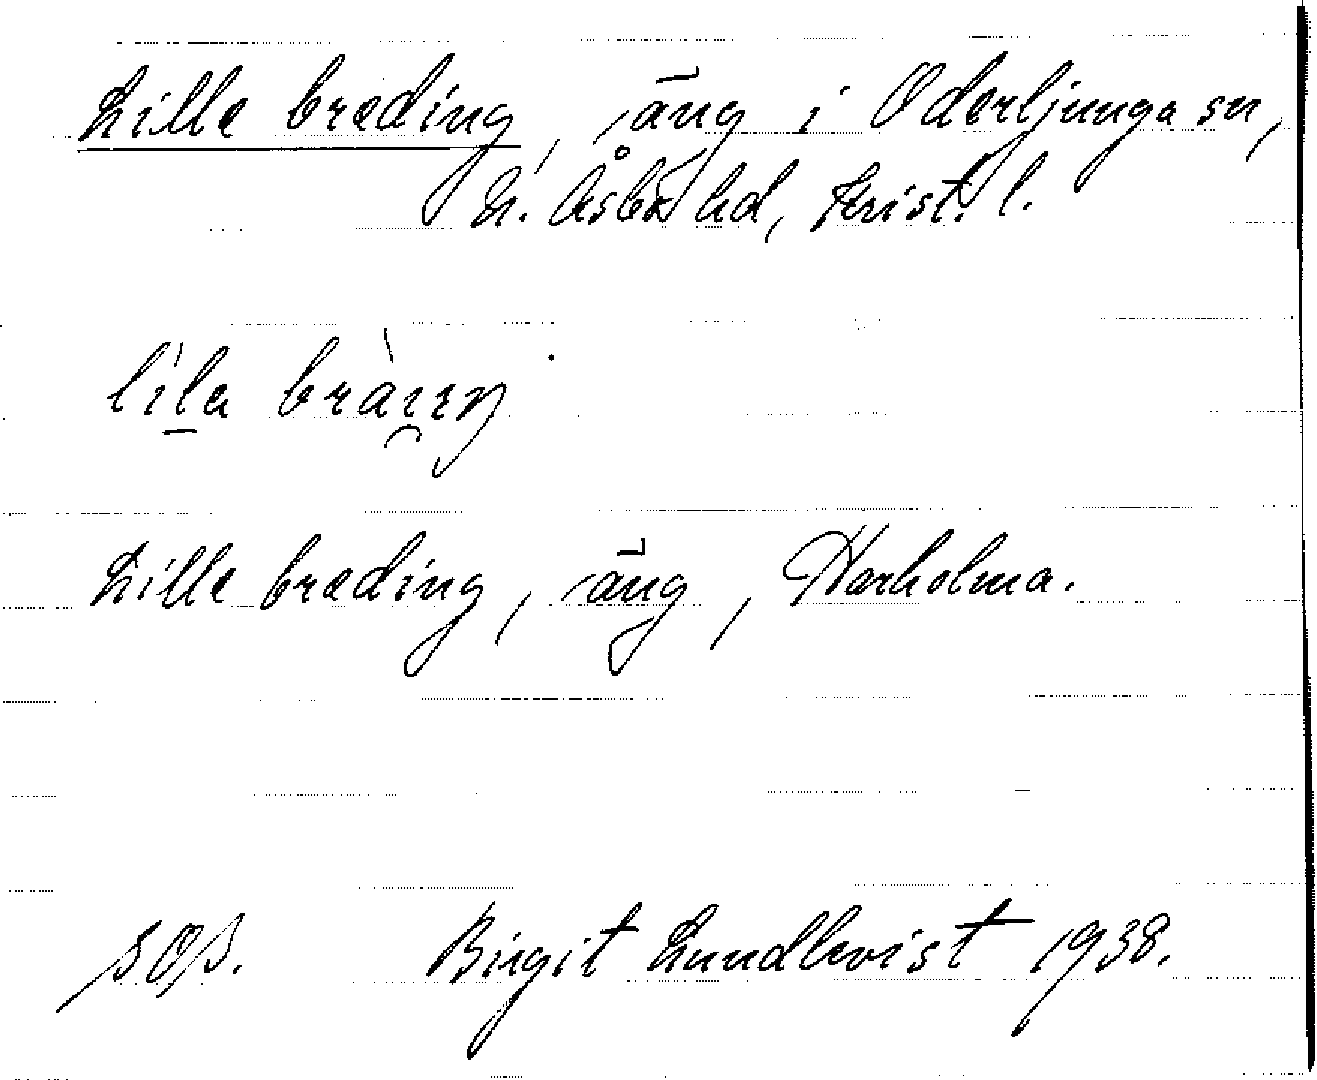 Lille breding, äng i Oderljunga sn,
N. Åsbo hd, Krist. l.
lila
Lille breding, äng, Harholma.
Birgit Lundkvist 1938.